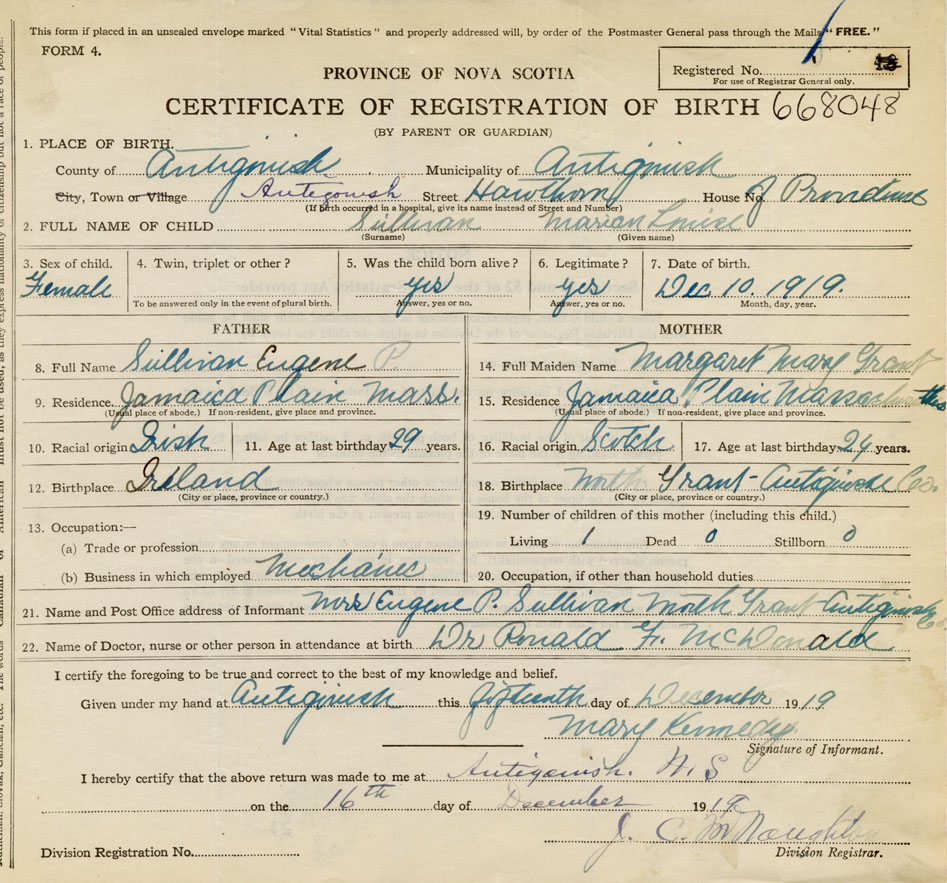 This form if placed in an unsealed envelope marked "Vital Statistics" and properly addressed will, by order of the Postmaster General pass through the Mails "FREE."
FORM 4.
Registered No.
For use of Registrar General only.
PROVINCE OF NOVA SCOTIA
CERTIFICATE OF REGISTRATION OF BIRTH 668048
(BY PARENT OR GUARDIAN)
1. PLACE OF BIRTH.
County of Antigonish Municipality of Antigonish
City, Town or Village Antigonish Street Hawthorn House No. J Providence
(If birth occurred in a hospital, give its name instead of Street and Number)
2. FULL NAME OF CHILD Sullivan Marian Louise
(Surname) (Given name)
3. Sex of child. 4. Twin, triplet or other? 5. Was the child born alive? 6. Legitimate? 7. Date of birth.
Female yes yes Dec 10. 1919.
To be answered only in the event of plural birth. Answer, yes or no. Answer, yes or no. Month, day, year.
FATHER
8. Full Name Sullivan Eugene P.
9. Residence Jamaica Plain Mass.
(Usual place of abode.) If non-resident, give place and province.
10. Racial origin Irish 11. Age at last birthday 29 years.
12. Birthplace Ireland
(City or place, province or country.)
13. Occupation:—
(a) Trade or profession
(b) Business in which employed Mechanic
MOTHER
14. Full Maiden Name Margaret Mary Grant
15. Residence Jamaica Plain Massachusetts
(Usual place of abode.) If non-resident, give place and province.
16. Racial origin Scotch 17. Age at last birthday 24 years.
18. Birthplace North Grant-Antigonish Co.
(City or place, province or country.)
19. Number of children of this mother (including this child.)
Living 1 Dead 0 Stillborn 0
20. Occupation, if other than household duties
21. Name and Post Office address of Informant Mrs Eugene P. Sullivan North Grant Antigonish Co.
22. Name of Doctor, nurse or other person in attendance at birth Dr Ronald F. McDonald
I certify the foregoing to be true and correct to the best of my knowledge and belief.
Given under my hand at Antigonish this fifteenth day of December 1919
Mary Kennedy
Signature of Informant.
I hereby certify that the above return was made to me at Antigonish. N.S
on the 16th day of December 1919
J. C. McNaughton
Division Registration No. Division Registrar.